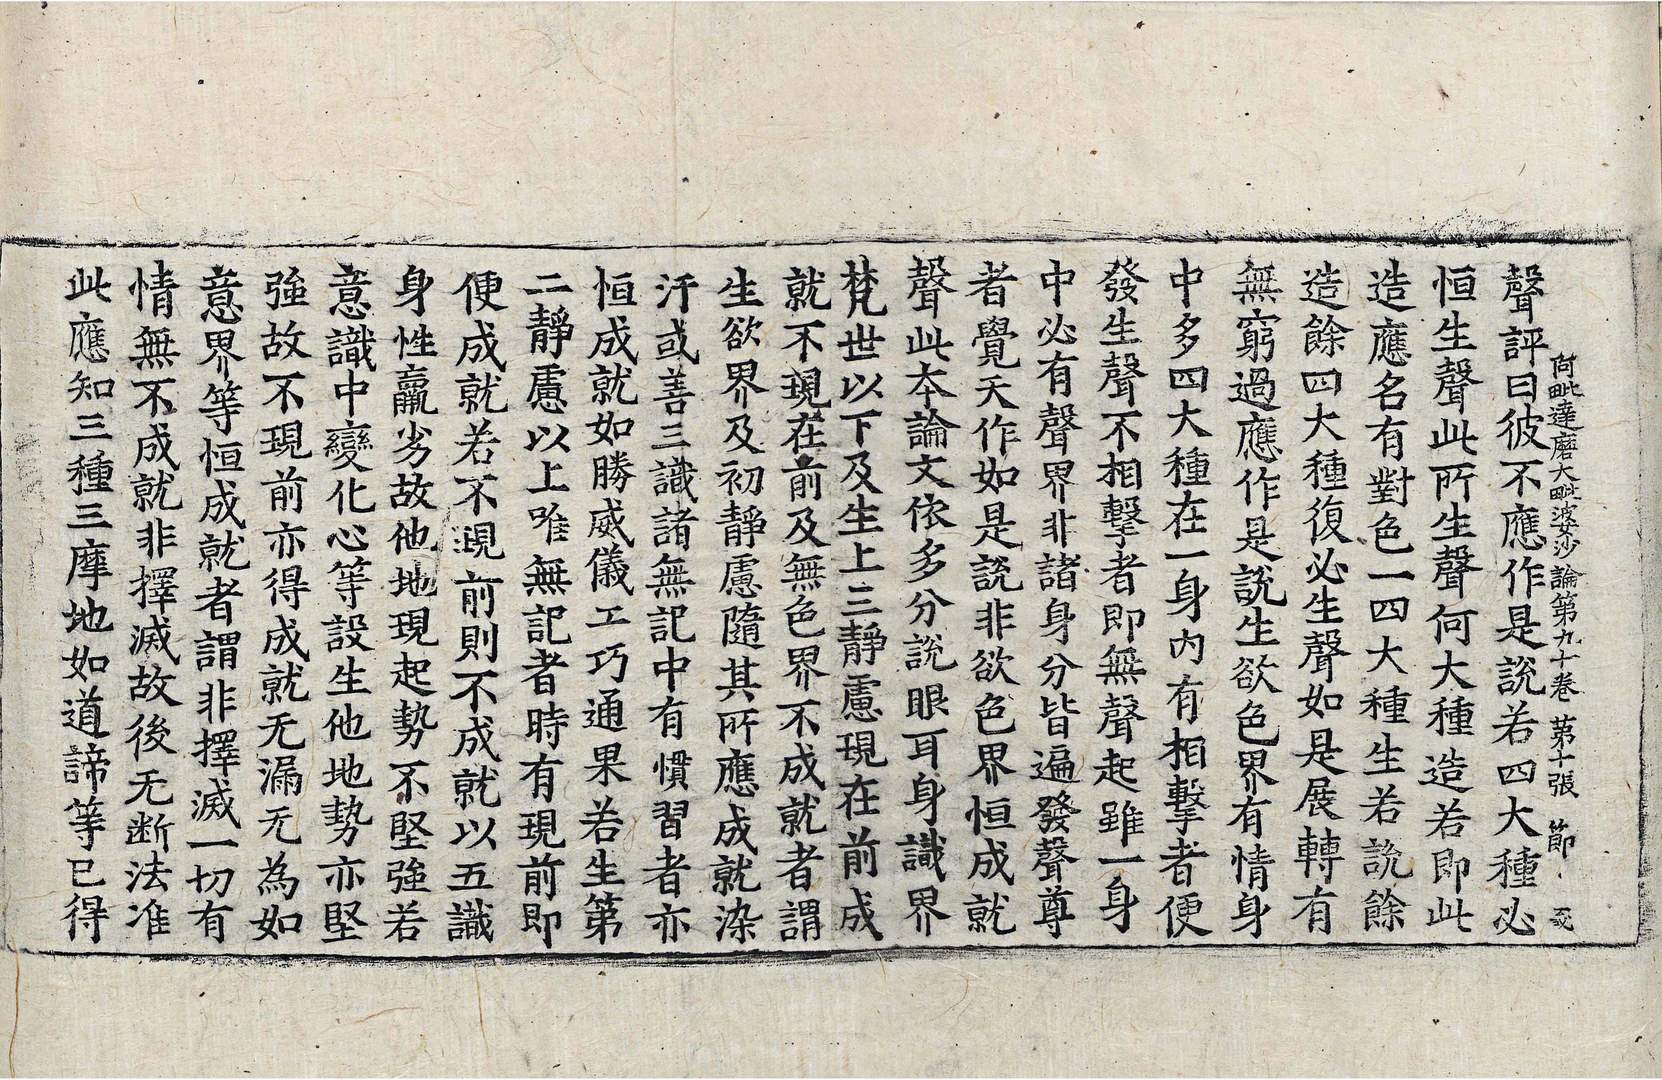 阿毗達磨大毗婆沙論第九十卷 第十張 節
聲評曰彼不應作是說若四大種必
恒生聲此所生聲何大種造若即此
造應名有對色一四大種生若說餘
造餘四大種復必生聲如是展轉有
無窮過應作是說生欲色界有情身
中多四大種在一身內有相擊者便
發生聲不相擊者即無聲起雖一身
中必有聲界非諸身分皆遍發聲尊
者覺天作如是說非欲色界恒成就
聲此本論文依多分說眼耳身識界
梵世以下及生上三靜慮現在前成
就不現在前及無色界不成就者謂
生欲界及初靜慮隨其所應成就染
汙或善三識諸無記中有慣習者亦
恒成就如勝威儀工巧通果若生第
二靜慮以上唯無記者時有現前即
便成就若不現前則不成就以五識
身性羸劣故他地現起勢不堅強若
意識中變化心等設生他地勢亦堅
強故不現前亦得成就无漏无為如
意界等恒成就者謂非擇滅一切有
情無不成就非擇滅故後无断法准
此應知三種三摩地如道諦等已得